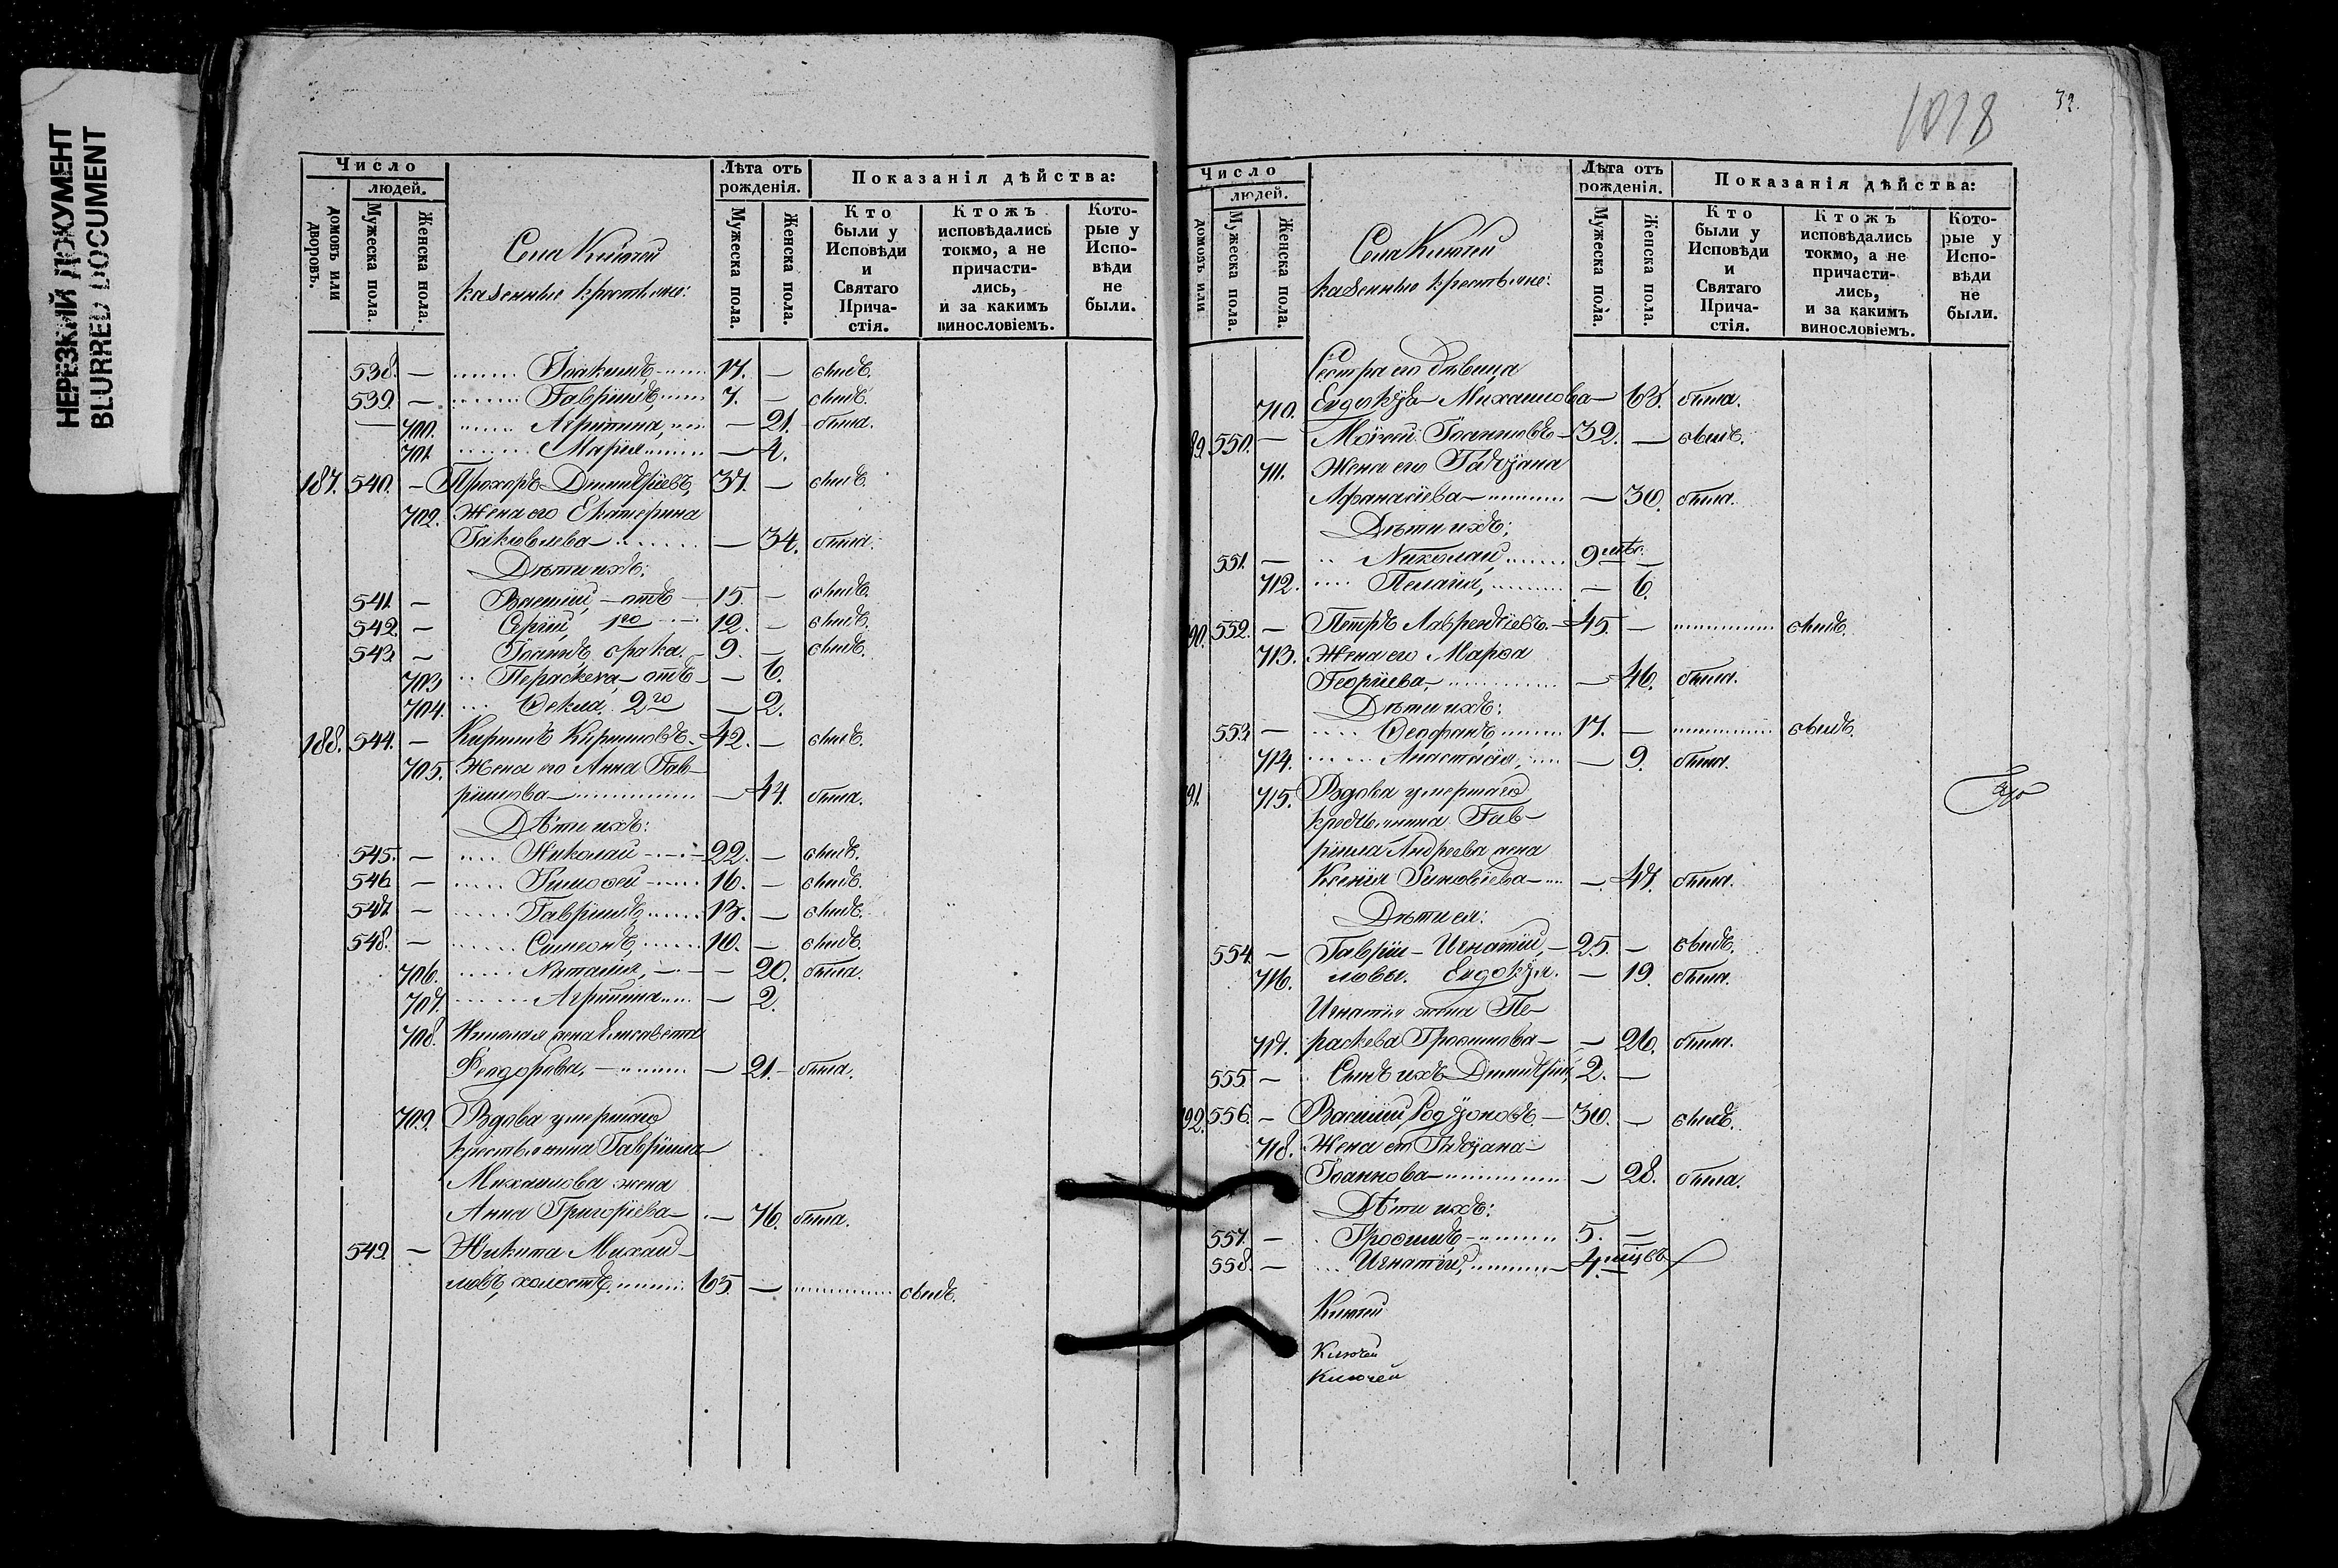 НЕРЕЗКИЙ ДОКУМЕНТ
BLURRED DOCUMENT
Число
людей.
домовъ или дворовъ.
Мужеска пола.
Женска пола.
Села Ключей
казенные крестьяне:
Лѣта отъ рожденія.
Мужеска пола.
Женска пола.
Показанія дѣйства:
Кто были у Исповѣди и Святаго Причастія.
Ктожъ исповѣдались токмо, а не причастились, и за какимъ винословіемъ.
Которые у Исповѣди не были.
538. — Іоакимъ 17. — былъ.
539. — Гавріилъ, 7. — былъ.
— 700. Агрипина, — 21. была.
701. Марія — 4.
187. 540. — Прохоръ Димитріевъ, 37. — былъ.
702. Жена его Екатерина
Іаковлева — 34. была.
Дѣти ихъ:
541. — Василій, — отъ 15. — былъ.
542. — Сергій, 1го 12. — былъ.
543. — Іоаннъ брака. 9. — былъ.
703 Параскева, отъ — 6.
704. Ѳекла. 2го — 2.
188. 544. — Кириллъ Кирилловъ. 42. — былъ.
705. Жена его Анна Гав-
рiилова — 44. была.
Дѣти ихъ:
545. — Николай 22. — былъ.
546 — Тимоѳей 16. — былъ.
547. — Гавріилъ, 13. — былъ.
548. — Симеонъ, 10. — былъ.
706. Наталія, — 20. была.
707. Агрипина — 2.
708. Николая жена Елисавета
Феодорова, — 21. была.
709. Вдова умершаго
крестьянина Гавріила
Михаилова жена
Анна Григоріева — 76. была.
549. — Никита Михаи-
ловъ, холостъ, 65. — былъ.
1018
32.
Число
людей.
домовъ или
Мужеска пола.
Женска пола.
Села Ключей
казенные крестьяне:
Лѣта отъ рожденія.
Мужеска пола.
Женска пола.
Показанія дѣйства:
Кто были у Исповѣди и Святаго Причастія.
Ктожъ исповѣдались токмо, а не причастились, и за какимъ винословіемъ.
Которые у Исповѣди не были.
Сестра его дѣвица
710. Евдокія Михаилова — 63. была.
89. 550. — Моѵсей Іоанновъ 32. — былъ.
711. Жена его Татіана
Афанасіева — 30. была.
Дѣти ихъ:
551. — Николай, 9 —
712. Пелагія, — 6.
90. 552. — Петръ Лаврентіевъ. 45. — былъ.
713. Жена его Марѳа
Георгіева, — 46. была.
Дѣти ихъ:
553. — Ѳеофанъ, 17. — былъ.
714. Анастасія, — 9. была.
91. 715. Вдова умершаго
крестьянина Гав-
рiила Андреева жена
Ксенія Зиновіева — 47. была.
Дѣти ея:
554. — Гавріи- Игнатій, 25. — былъ.
716. ловы. Евдокія. — 19. была.
Игнатія жена Па-
717. раскева Трофимова — 26. была.
555. — Сынъ ихъ Димитрій, 2. —
92. 556. — Василій Родіоновъ — 30. — былъ.
718. Жена его Татіана
Іоаннова — 28. была.
Дѣти ихъ:
557. — Трофимъ 5. —
558. — Игнатій, 4 мѣсъ.
Ключей
Ключей
Ключей